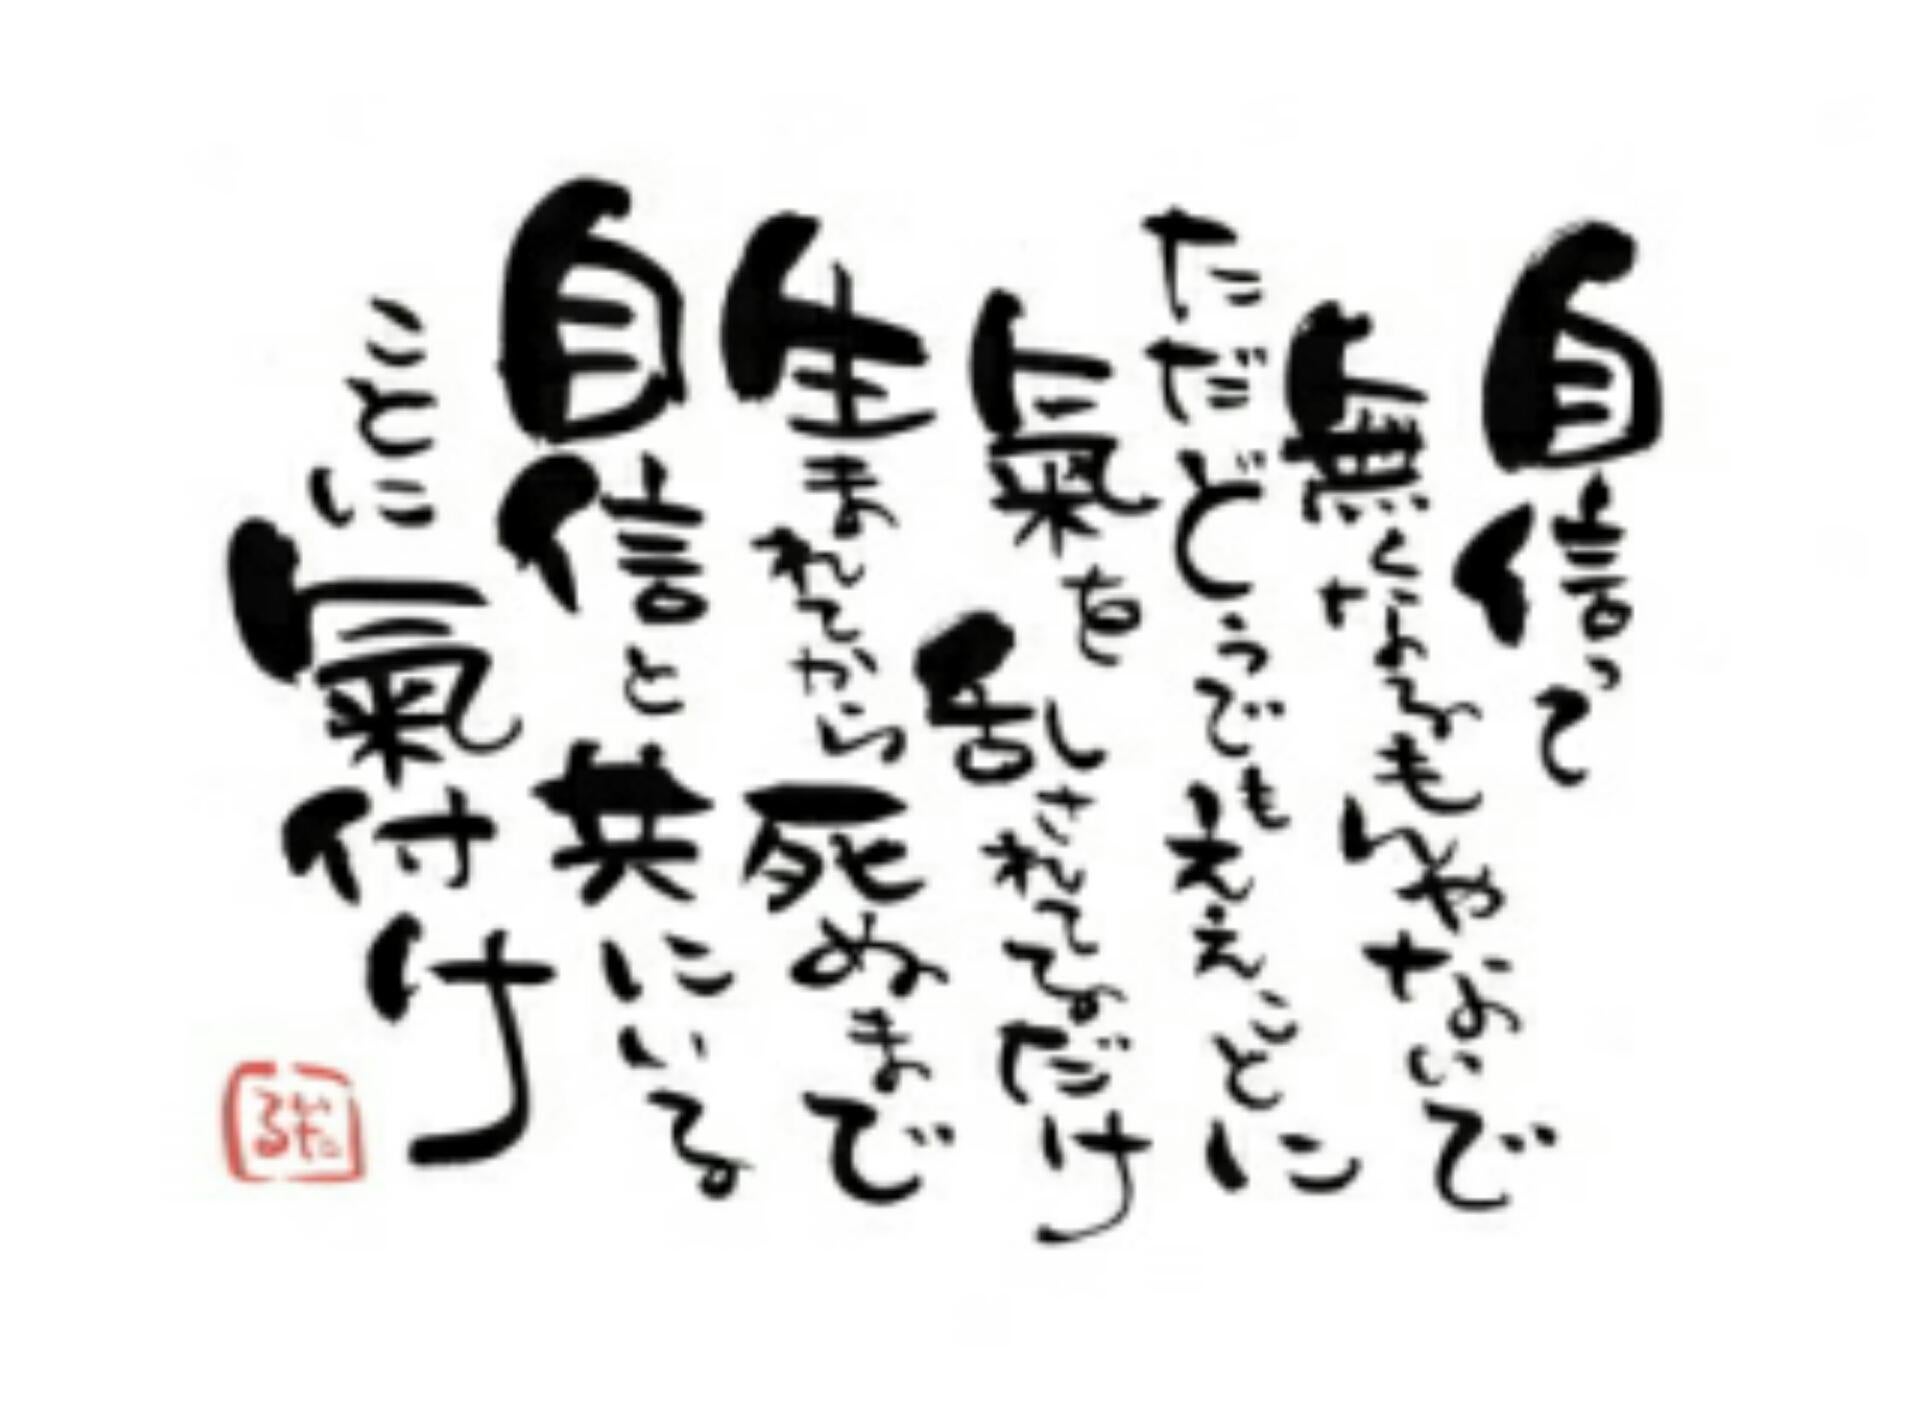 自信って
無くなるもんやないで
ただどうでもええことに
氣を乱されてるだけ
生まれてから死ぬまで
自信と共にいる
ことに氣付け